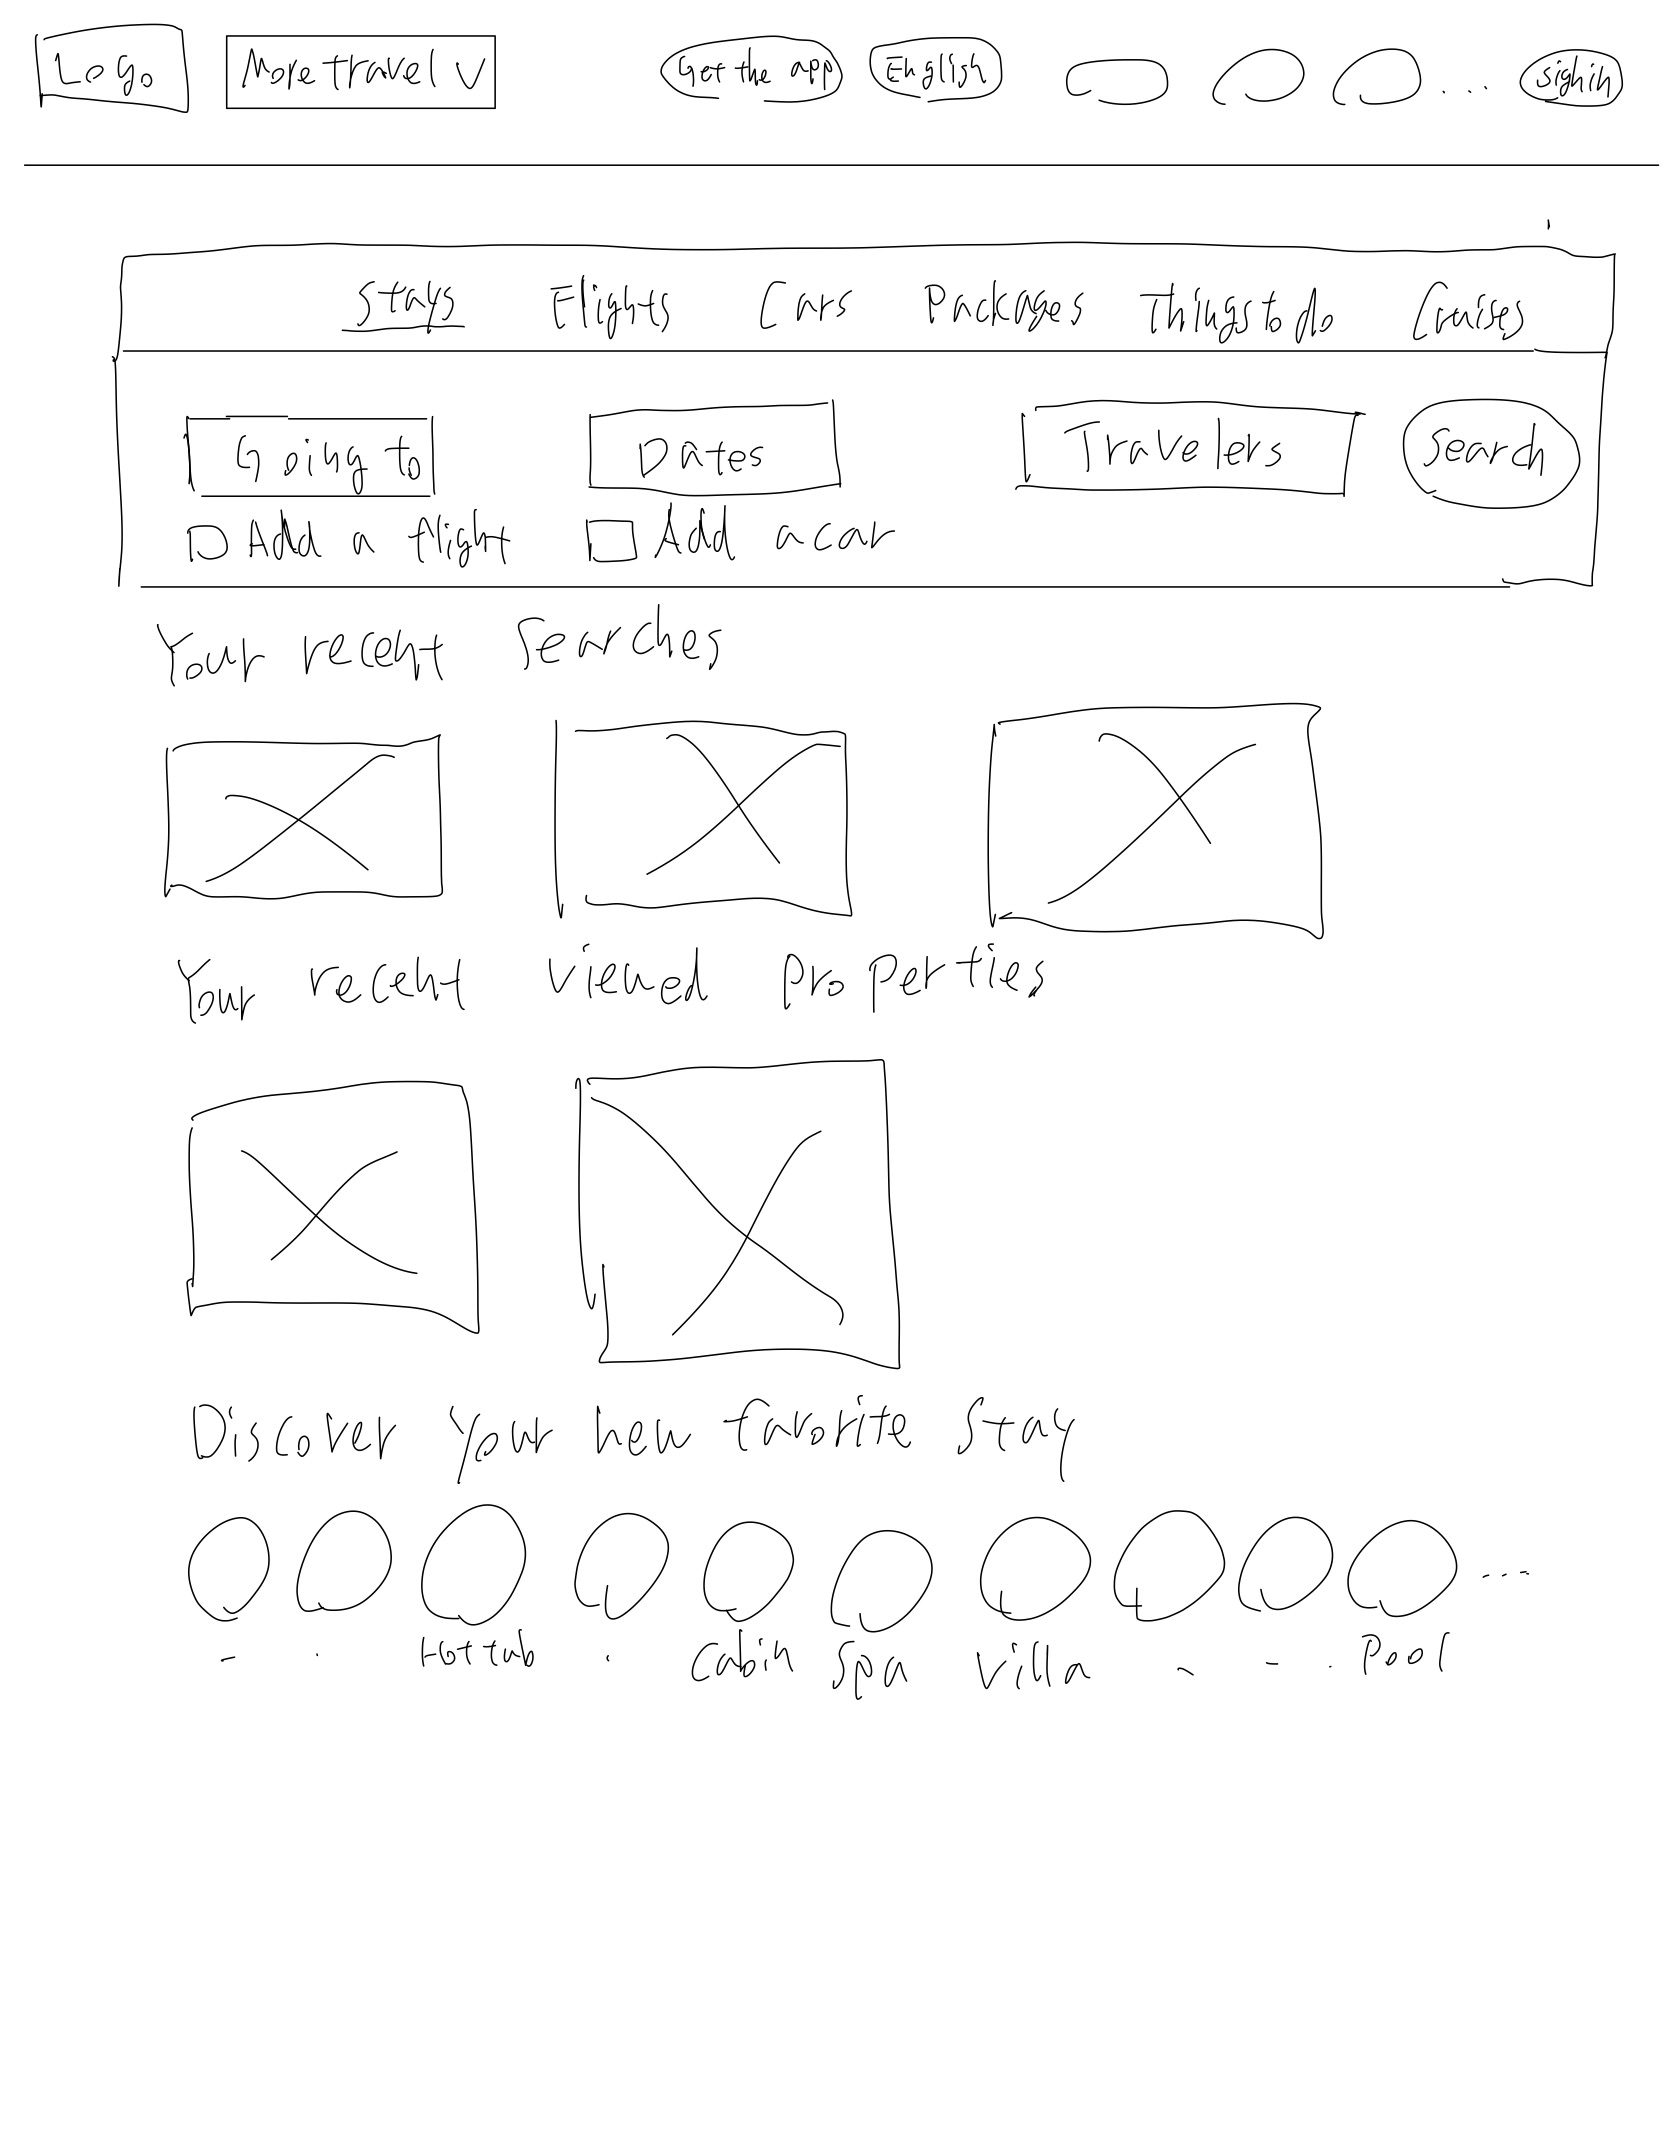 Logo More travel V Get the app English ... sign in
Stays Flights Cars Packages Things to do Cruises
Going to Dates Travelers Search
Add a flight Add a car
Your recent searches
Your recent viewed properties
Discover your new favorite stay
...
Hot tub Cabin Spa Villa Pool